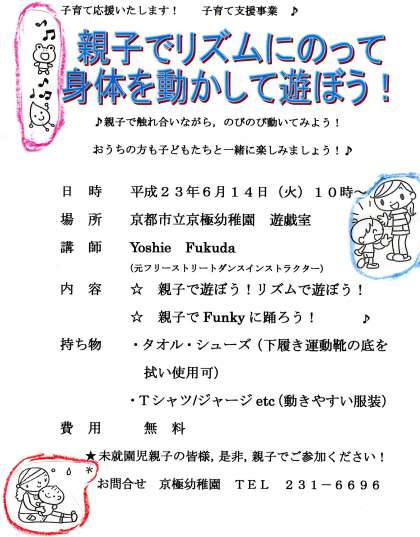 子育て応援いたします！　　子育て支援事業　♪
親子でリズムにのって
身体を動かして遊ぼう！
♪親子で触れ合いながら，のびのび動いてみよう！
おうちの方も子どもたちと一緒に楽しみましょう！♪
日　時　　平成２３年６月１４日（火）１０時～
場　所　　京都市立京極幼稚園　遊戯室
講　師　　Yoshie　Fukuda
（元フリーストリートダンスインストラクター）
内　容　　☆　親子で遊ぼう！リズムで遊ぼう！
☆　親子で Funky に踊ろう！　　♪
持ち物　　・タオル・シューズ（下履き運動靴の底を
拭い使用可）
・Ｔシャツ/ジャージ etc（動きやすい服装）
費　用　　　無　料
★未就園児親子の皆様，是非，親子でご参加ください！
お問合せ　京極幼稚園　ＴＥＬ　２３１－６６９６